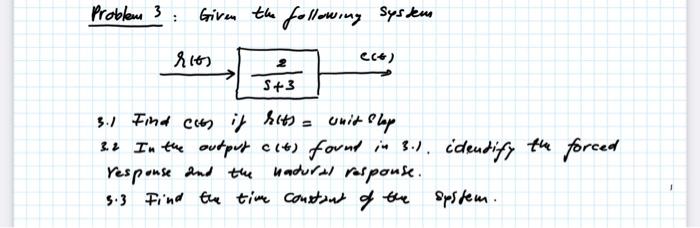 Problem 3 : Given the following System
r(t) 2 c(t)
S+3
3.1 Find c(t) if r(t) = unit step
3.2 In the output c(t) found in 3.1. identify the forced
response and the natural response.
3.3 Find the time constant of the system.